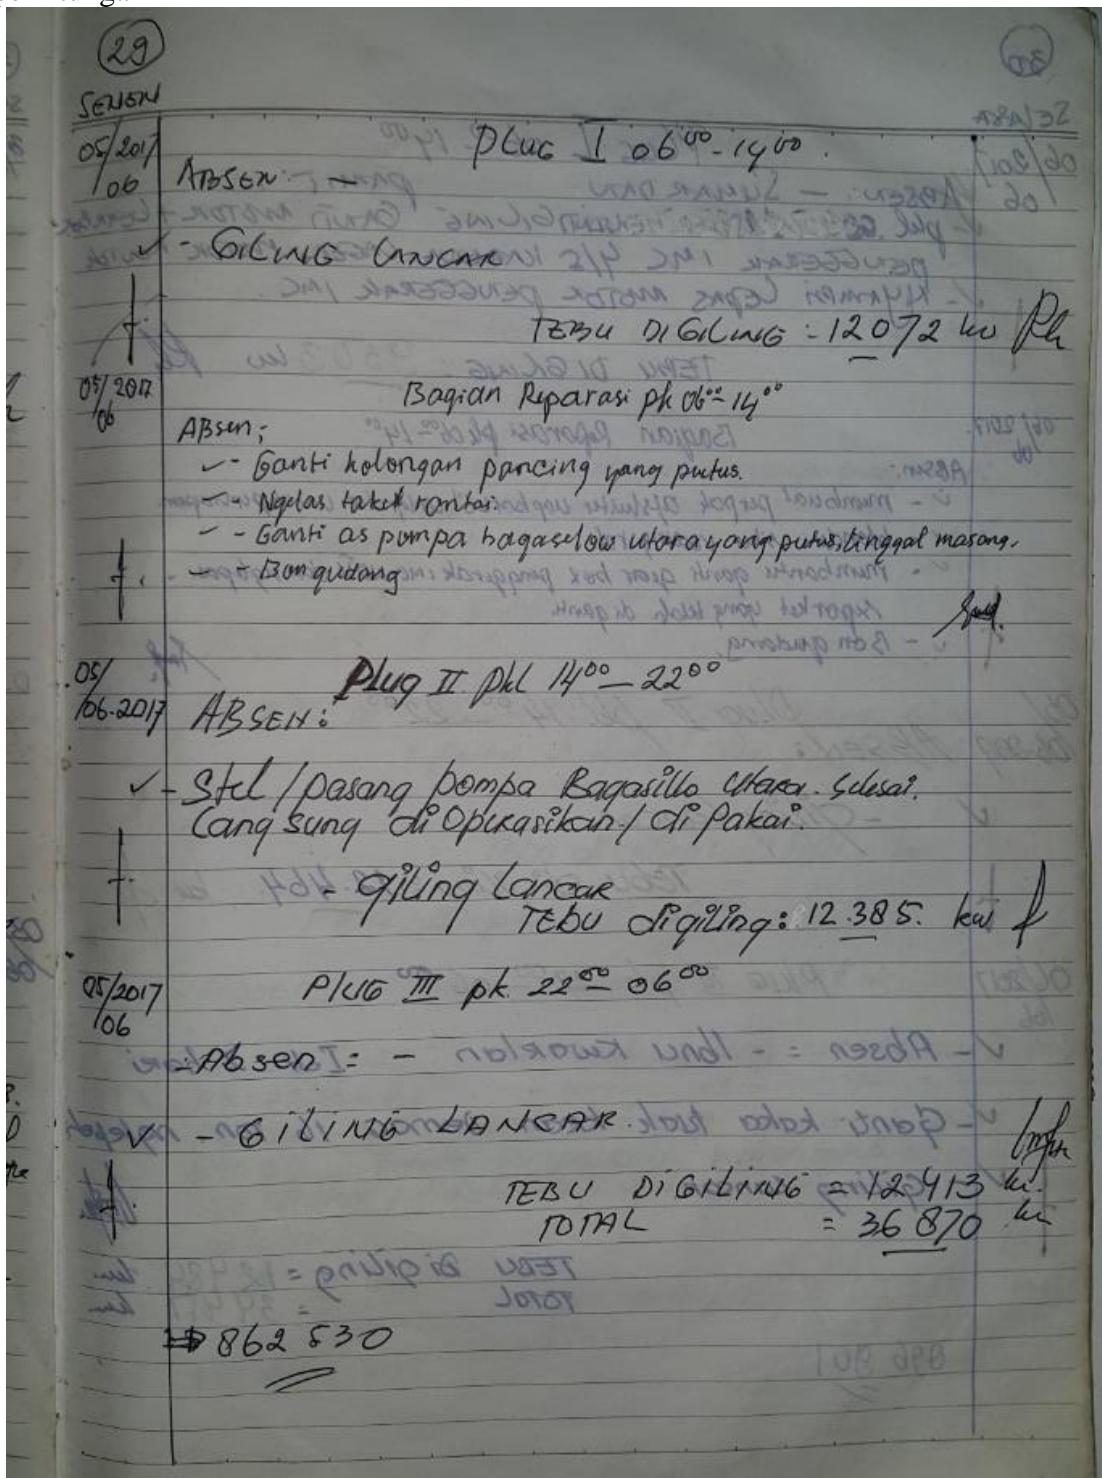 29
SENEN
05/2017
/06
PLUG I 06⁰⁰-14⁰⁰.
ABSEN: -
✓ - GILING LANCAR
TEBU DIGILING = 12072 kw
05/2017
/06
Bagian Reparasi pk 06⁰⁰-14⁰⁰
ABsen;
✓ - Ganti kolongan pancing yang putus.
✓ - Ngelas taket rantai
✓ - Ganti as pompa bagaselow utara yang putus, tinggal masang.
✓ - Bon gudang
05/
/06-2017
Plug II pkl 14⁰⁰ - 22⁰⁰
ABSEN:
✓ - Stel / pasang pompa Bagasillo utara. Selesai.
Langsung di Operasikan / di Pakai.
- giling Lancar
TEBU digiling: 12.385. kw
05/2017
/06
PLUG III pk. 22⁰⁰ - 06⁰⁰
- Absen = -
✓ - GILING LANCAR.
TEBU DIGILING = 12413 kw.
TOTAL = 36870 kw
⇒ 862 530